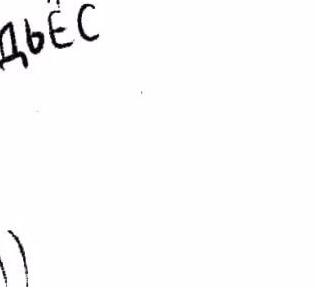 ДЬЁС
))